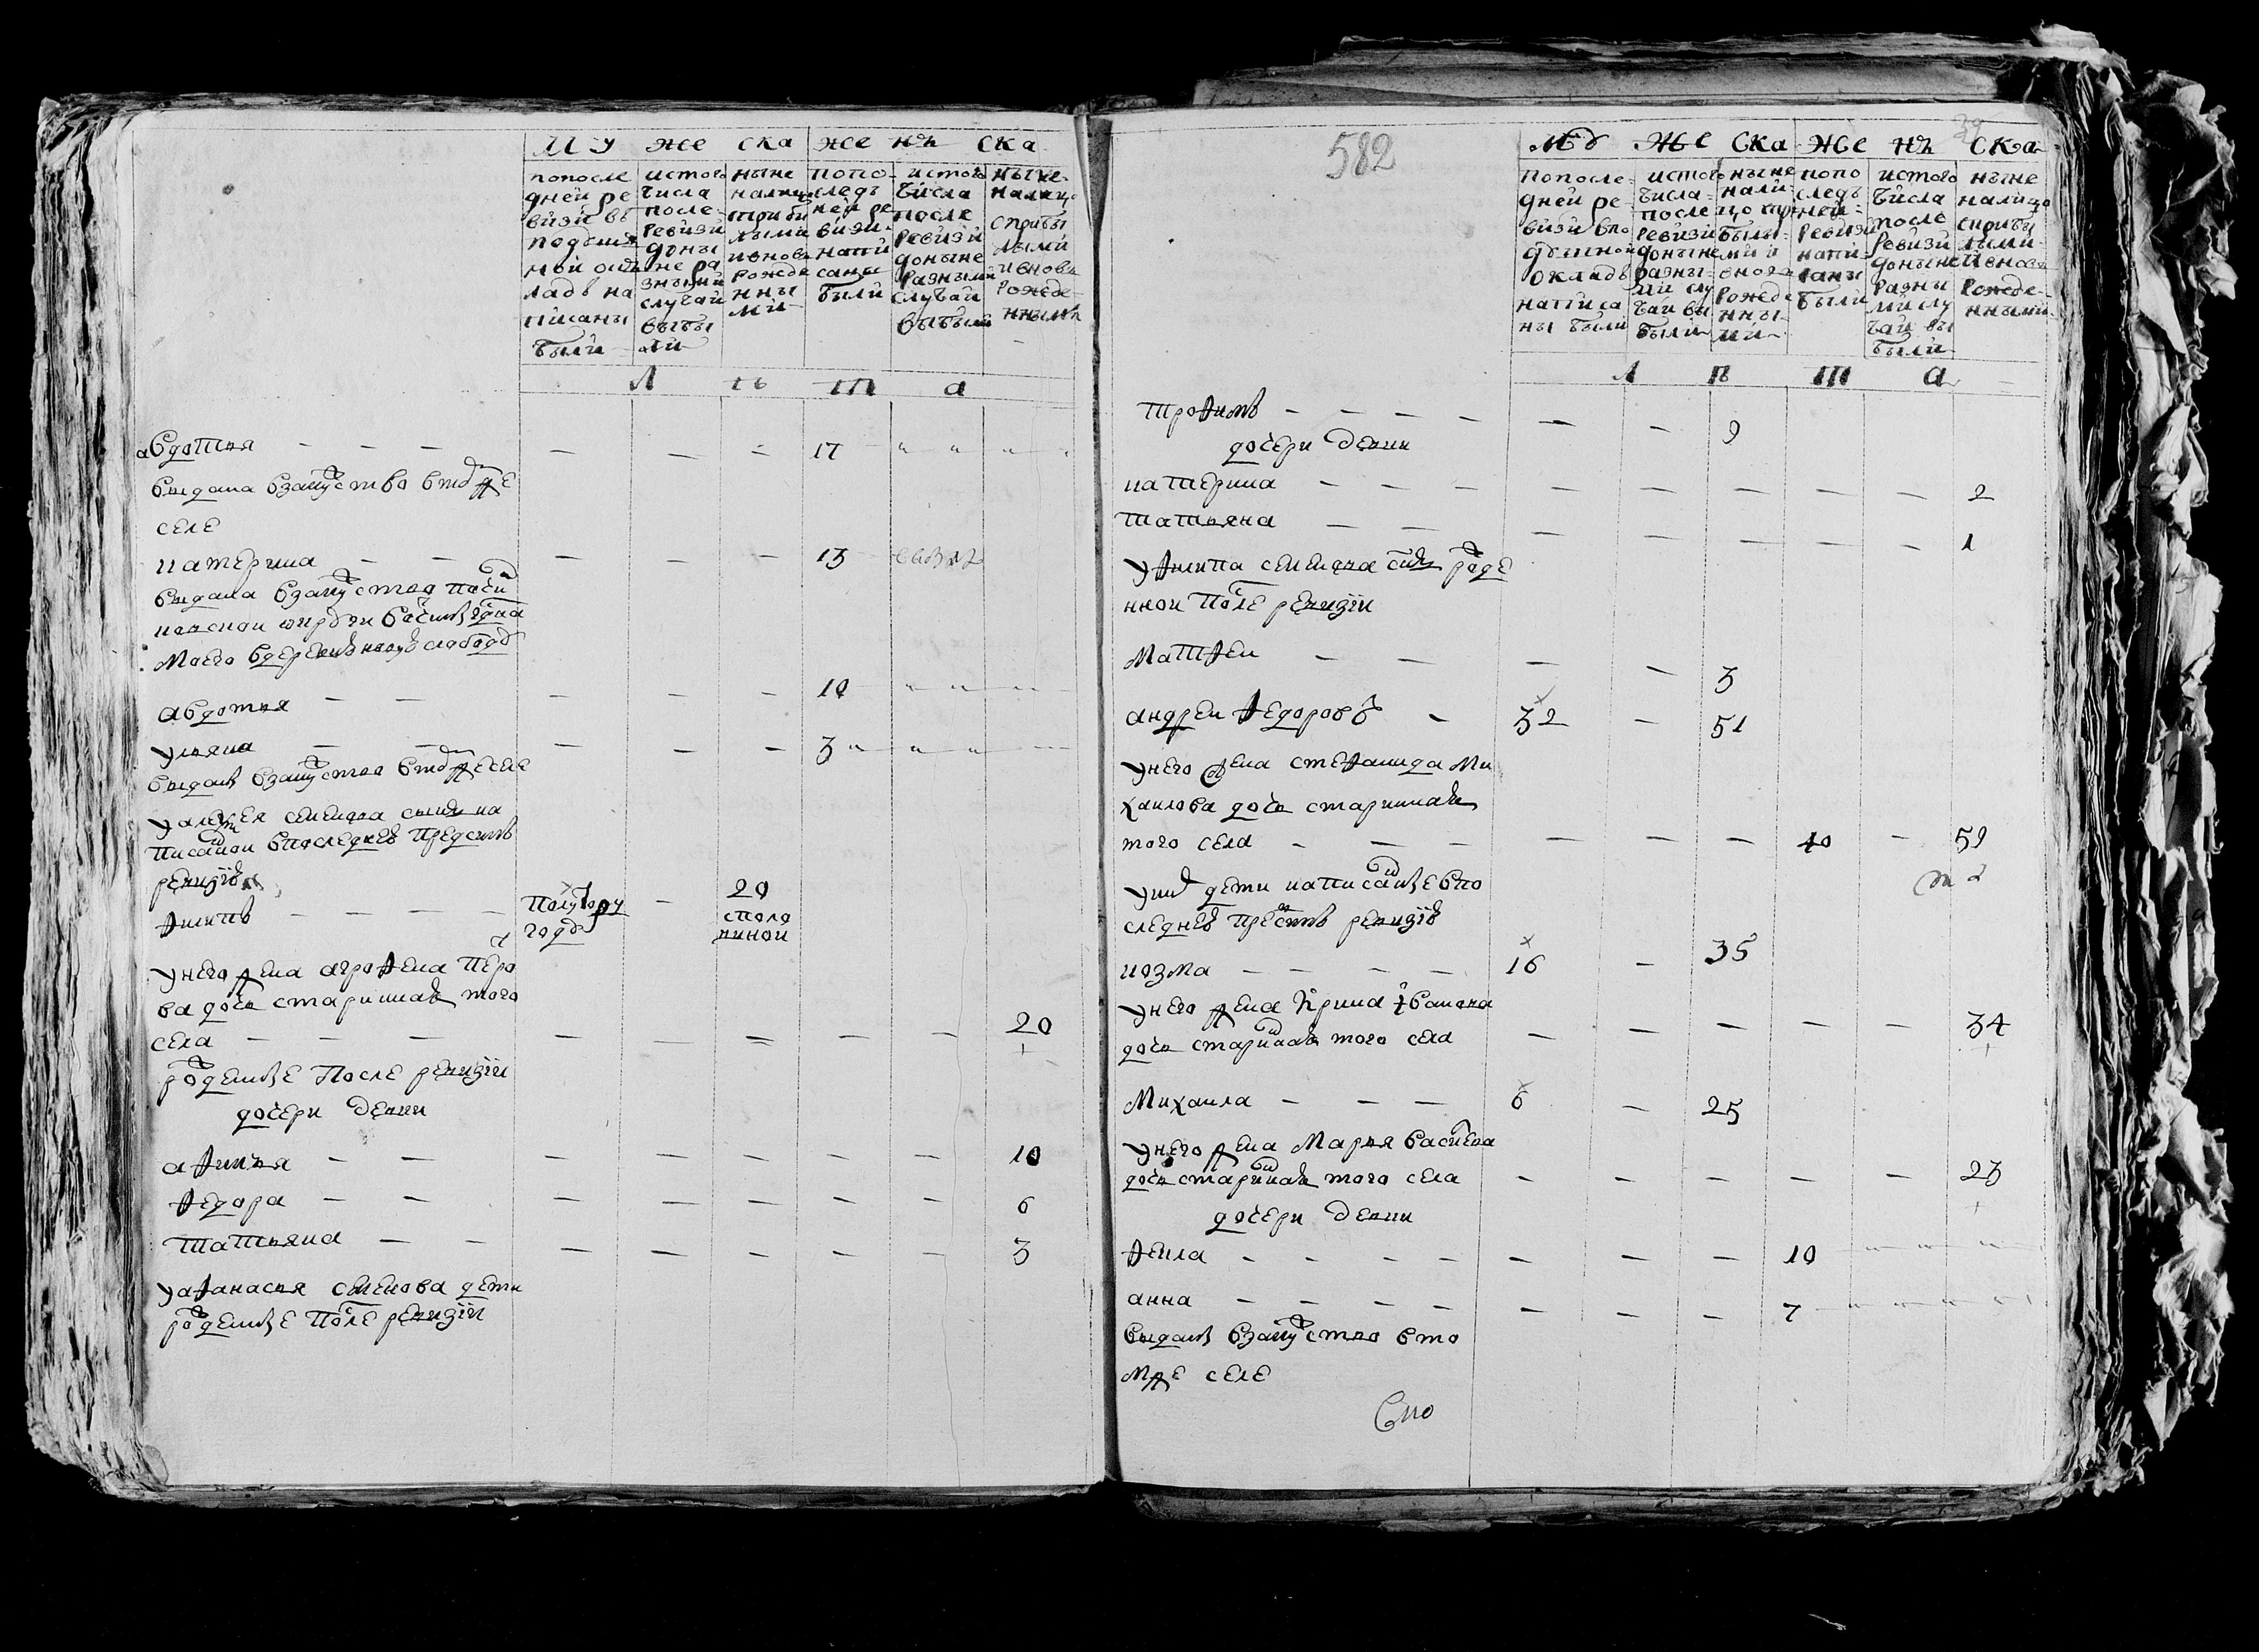 му же ска же нъ ска
попосле дней ре визи въ подушн мой окла ладъ на писаны были
истого числа после ревизи доны не ра зными случаи выбы ли
ныне налицо сприбы лыми ивновь рожде нны ми
попо следъ ней ре визи напи саны были
истого числа после ревизи доныне разными случаи выбыли
ныне налицо сприбы лыми ивновь рожде нными
л ѣ т а
авдотья — — — — — — 17
выдана взамуство втомже
селе
катерина — — — — — 13
выдана взамуство
моего вдеревню
авдотья — — — — — 10
ульяна — — — — — 3
выданы взамуство втомже селе
уалексея семенова сынъ на
писанои впоследнеи предсимъ
ревизиі
филипъ — — — — полутору году — 20 споло виною
унего жена агрофена петро
ва дочь старинная того
села — — — — — — — — 20
рожденные после ревизіи
дочери девки
афимья — — — — — — — 10
федора — — — — — — — 6
татьяна — — — — — — — 3
уафанасья семенова дети
рожденные после ревизіи
582
му же ска же нъ ска
попосле дней ре визи впо душной окладъ написа ны были
истого числа после ревизи доныне разны ми слу чаи вы были
ныне нали цо при были ми и вновь рожде нны ми
попо следъ ней ревизи напи саны были
истого числа после ревизи доныне разны ми слу чаи вы были
ныне налицо сприбы лыми ивновь рожде нными
л ѣ т а
трофимъ — — — — — — 9
дочери девки
катерина — — — — — — — — 2
татьяна — — — — — — — 1
уфилипа семенова сынъ рожде
ннои после ревизіи
матфеи — — — — 3
андреи федоровъ — 32 — 51
унего жена стефанида ми
хаилова дочь старинная
того села — — — — — — 40 — 59
унихъ дети написанные впо
следнеи предсимъ ревизіи
козма — — — — 16 — 35
унего жена ирина іванова
дочь старинная того села — — — — — 34
михаила — — — 6 — 25
унего жена марья васильева
дочь старинная того села — — — — — 23
дочери девки
фекла — — — — — — — 10
анна — — — — — — — 7
выданы взамуство вто
мже селе